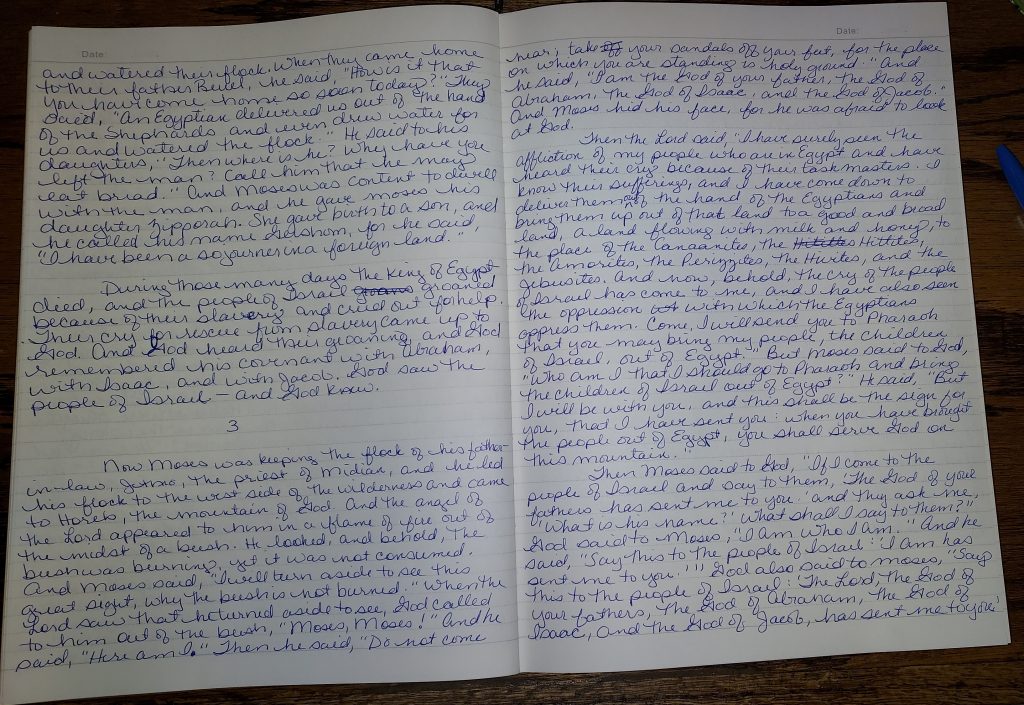 Date:
and watered their flock. When they came home
to their father Reuel, he said, "How is it that
you have come home so soon today?" They
said, "An Egyptian delivered us out of the hand
of the Shepherds and even drew water for
us and watered the flock." He said to his
daughters, "Then where is he? Why have you
left the man? Call him that he may
eat bread." And Moses was content to dwell
with the man, and he gave moses his
daughter Zipporah. She gave birth to a son, and
he called his name Gershom, for he said,
"I have been a sojourner in a foreign land."
During those many days the king of Egypt
died, and the people of Israel groans groaned
because of their slavery and cried out for help.
Their cry for rescue from slavery came up to
God. And God heard their groaning, and God
remembered his covenant with Abraham,
with Isaac, and with Jacob. God saw the
people of Israel – and God knew.
3
Now Moses was keeping the flock of his father-
in-law, Jethro, the priest of Midian, and he led
his flock to the west side of the wilderness and came
to Horeb, the mountain of God. And the angel of
the Lord appeared to him in a flame of fire out of
the midst of a bush. He looked, and behold, the
bush was burning, yet it was not consumed.
And Moses said, "I will turn aside to see this
great sight, why the bush is not burned." When the
Lord saw that he turned aside to see, God called
to him out of the bush, "Moses, Moses!" And he
said, "Here am I." Then he said, "Do not come
Date:
near; take off your sandals off your feet, for the place
on which you are standing is holy ground." And
he said, "I am the God of your father, the God of
Abraham, the God of Isaac, and the God of Jacob."
And Moses hid his face, for he was afraid to look
at God.
Then the Lord said, "I have surely seen the
affliction of my people who are in Egypt and have
heard their cry because of their taskmasters. I
know their sufferings, and I have come down to
deliver them out of the hand of the Egyptians and
bring them up out of that land to a good and broad
land, a land flowing with milk and honey, to
the place of the Canaanites, the Hittites,
the Amorites, the Perizzites, the Hivites, and the
Jebusites. And now, behold, the cry of the people
of Israel has come to me, and I have also seen
the oppression with which the Egyptians
oppress them. Come, I will send you to Pharaoh
that you may bring my people, the children
of Israel out of Egypt." But Moses said to God,
"Who am I that I should go to Pharaoh and bring
the children of Israel out of Egypt?" He said, "But
I will be with you, and this shall be the sign for
you, that I have sent you: when you have brought
the people out of Egypt, you shall serve God on
this mountain."
Then Moses said to God, "If I come to the
people of Israel and say to them, 'The God of your
fathers has sent me to you.' and they ask me,
'What is his name?' What shall I say to them?"
God said to Moses, "I am who I am." And he
said, "Say this to the people of Israel: 'I am has
sent me to you.'" God also said to Moses, "Say
this to the people of Israel: 'The Lord, the God of
your fathers, the God of Abraham, the God of
Isaac, and the God of Jacob, has sent me to you.'